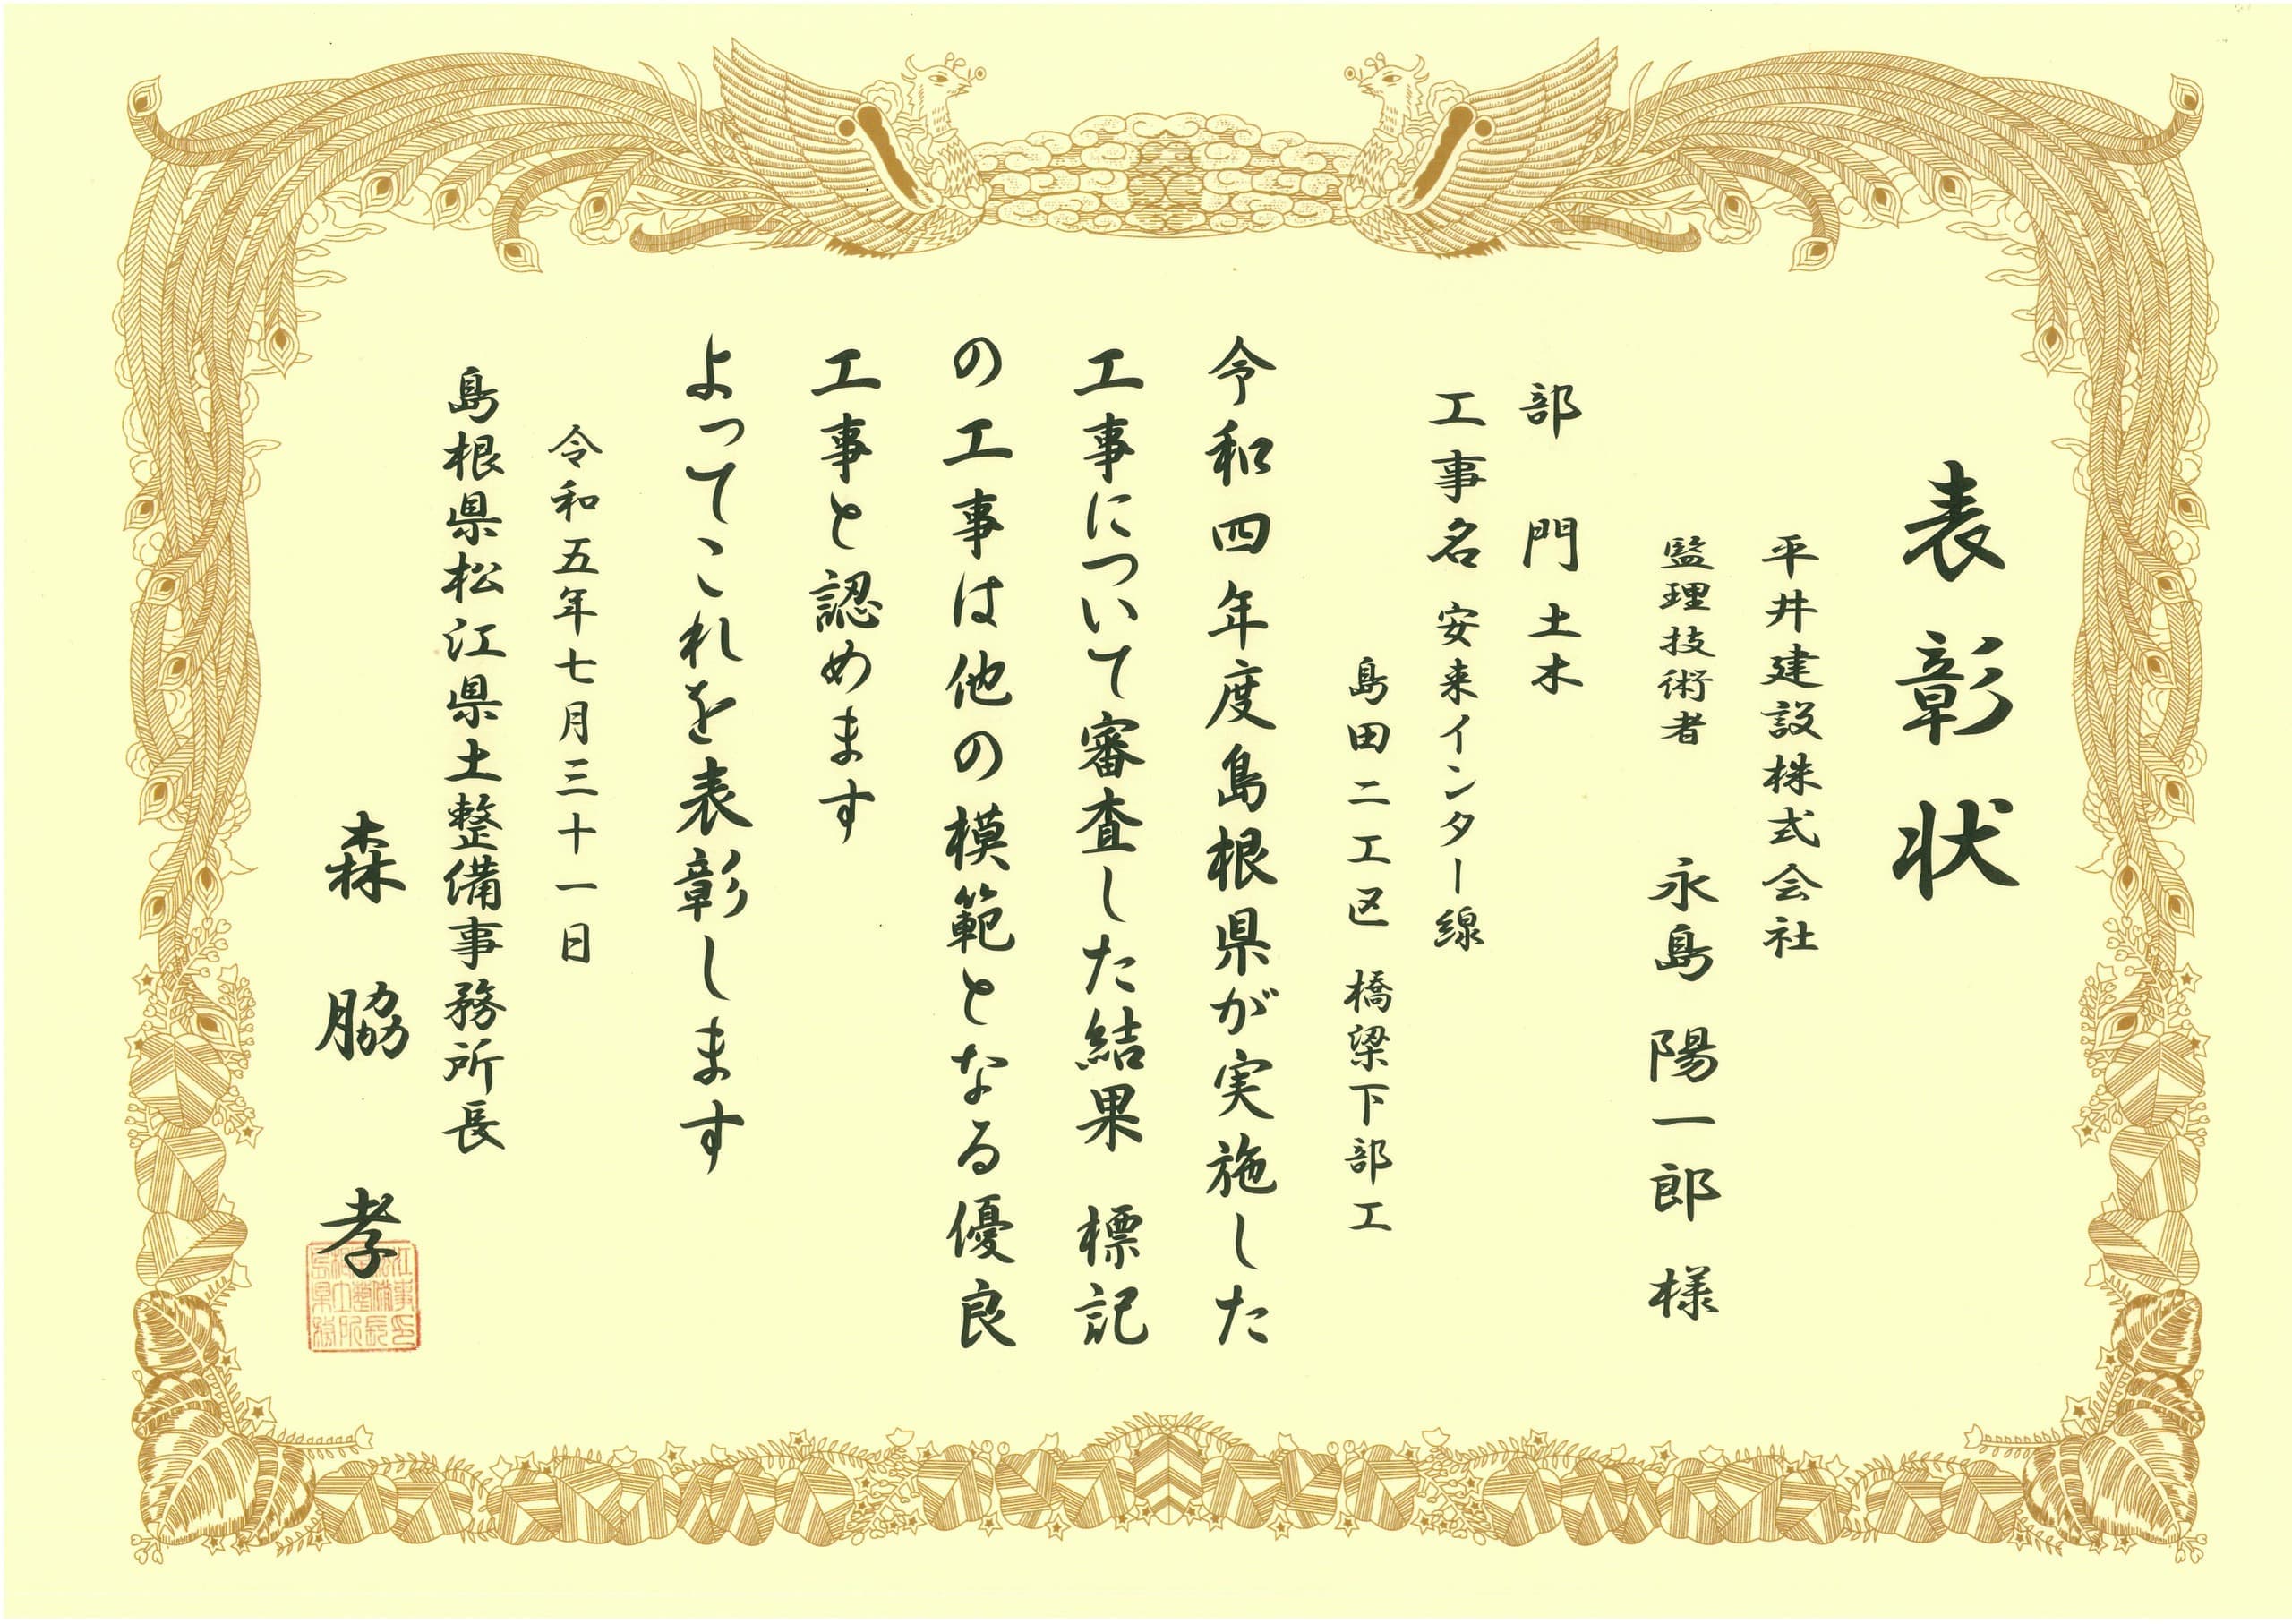 表彰状
平井建設株式会社
監理技術者 永島陽一郎様
部門 土木
工事名 安来インター線
島田二工区 橋梁下部工
令和四年度島根県が実施した
工事について審査した結果 標記
の工事は他の模範となる優良
工事と認めます
よってこれを表彰します
令和五年七月三十一日
島根県松江県土整備事務所長
森脇孝